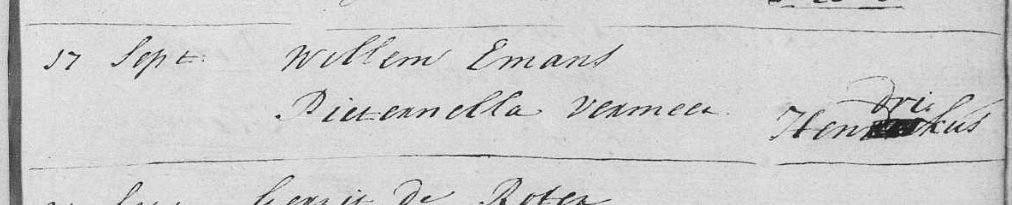 17 Sept. Willem Emans
Pieternella Vermeer Hendrikus
Gerrit De Roter